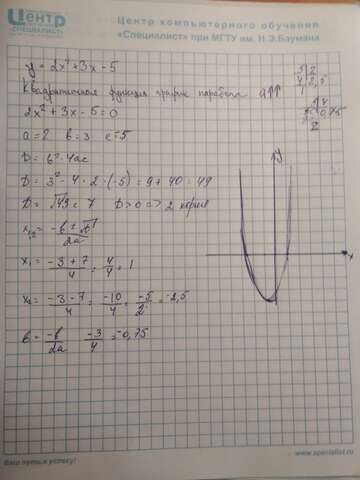 Центр
«СПЕЦИАЛИСТ»
Центр компьютерного обучения
«Специалист» при МГТУ им. Н.Э.Баумана
y = 2x² + 3x - 5
Квадратичная функция график парабола a↑↑
2x² + 3x - 5 = 0
a = 2 b = 3 c = -5
D = b² - 4ac
D = 3² - 4 · 2 · (-5) = 9 + 40 = 49
D = √49 = 7 D > 0 => 2 корня
x₁,₂ = -b ± √D / 2a
x₁ = -3 + 7 / 4 = 4/4 = 1
x₂ = -3 - 7 / 4 = -10/4 = -5/2 = -2,5
в = -b/2a -3/4 = -0,75
y
x
Ваш путь к успеху!
www.specialist.ru